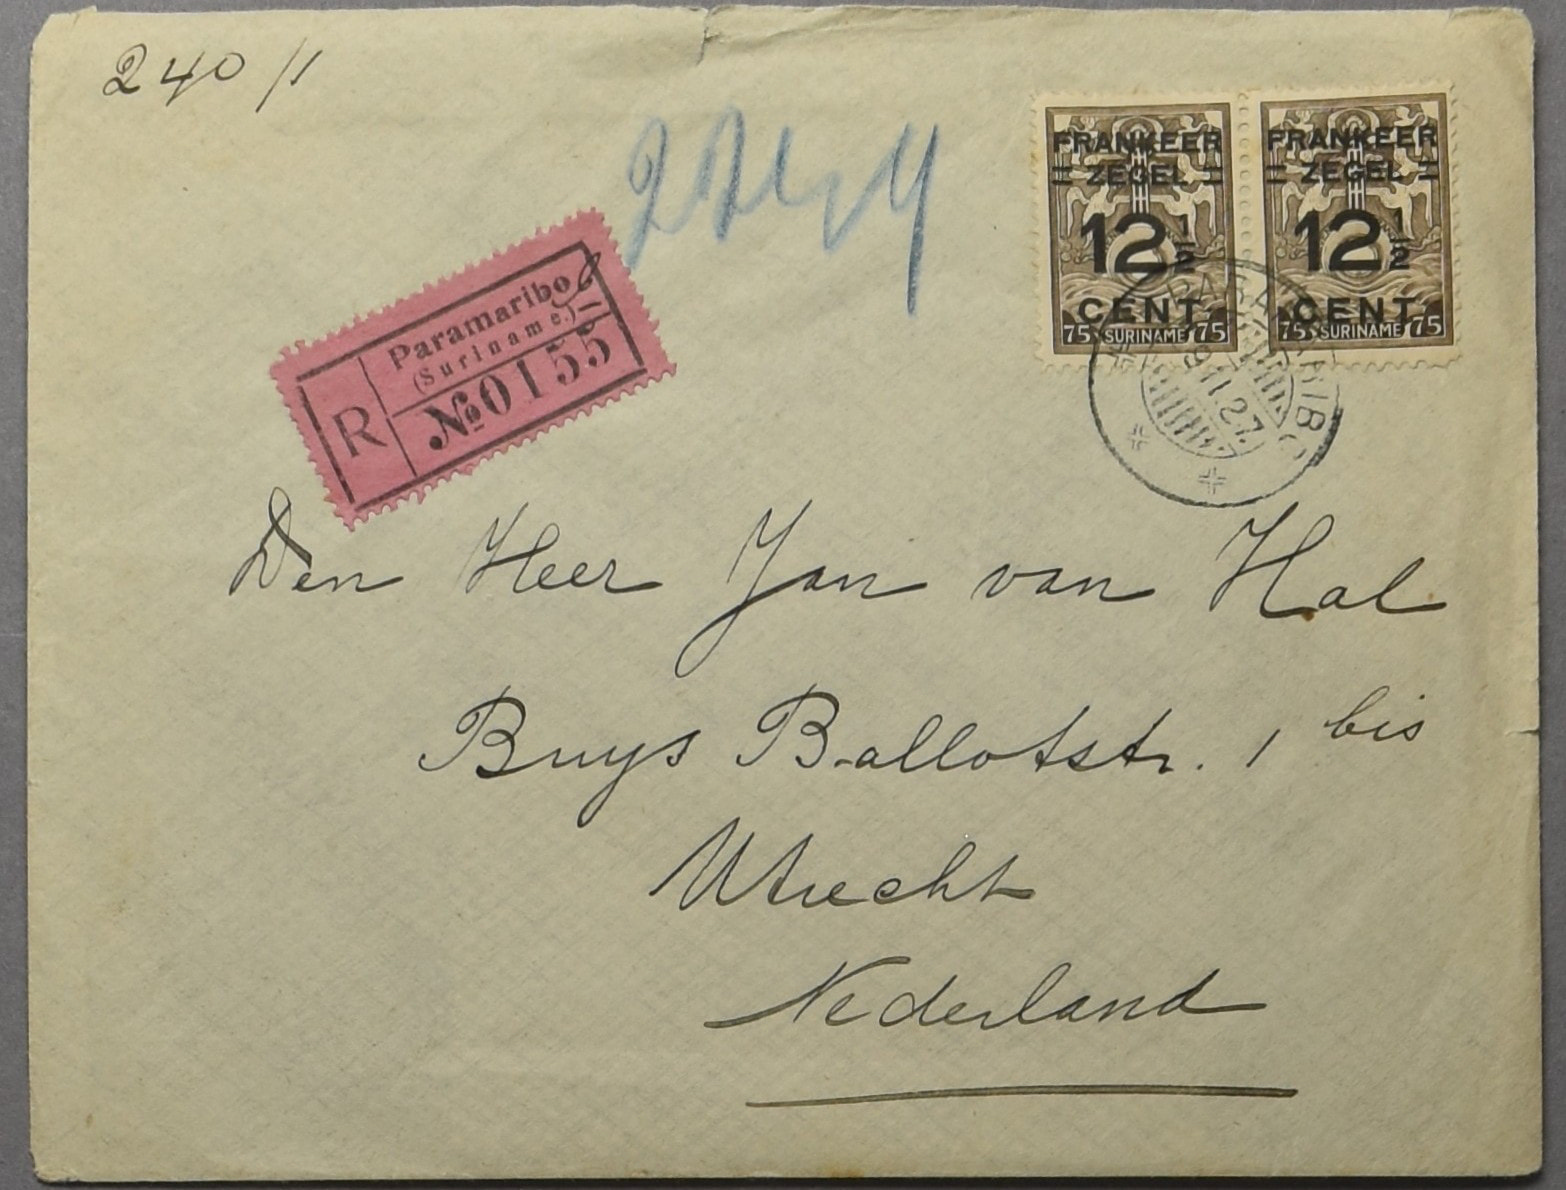 240/1
FRANKEER
ZEGEL
12 1/2
CENT
75 SURINAME 75
FRANKEER
ZEGEL
12 1/2
CENT
75 SURINAME 75
PARAMARIBO
27
R
Paramaribo
(Suriname.)
№ 0155
Den Heer Jan van Hal
Buys Ballotstr. 1 bis
Utrecht
Nederland